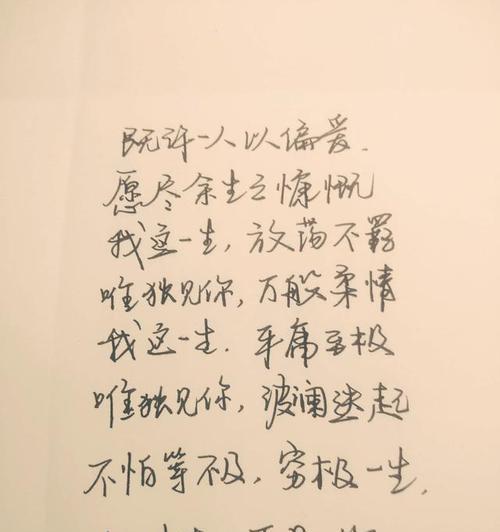 既许一人以偏爱.
愿尽余生之慷慨
我这一生，放荡不羁
唯独见你，万般柔情
我这一生.平庸至极
唯独见你，波澜迭起
不怕等不及，穷极一生.